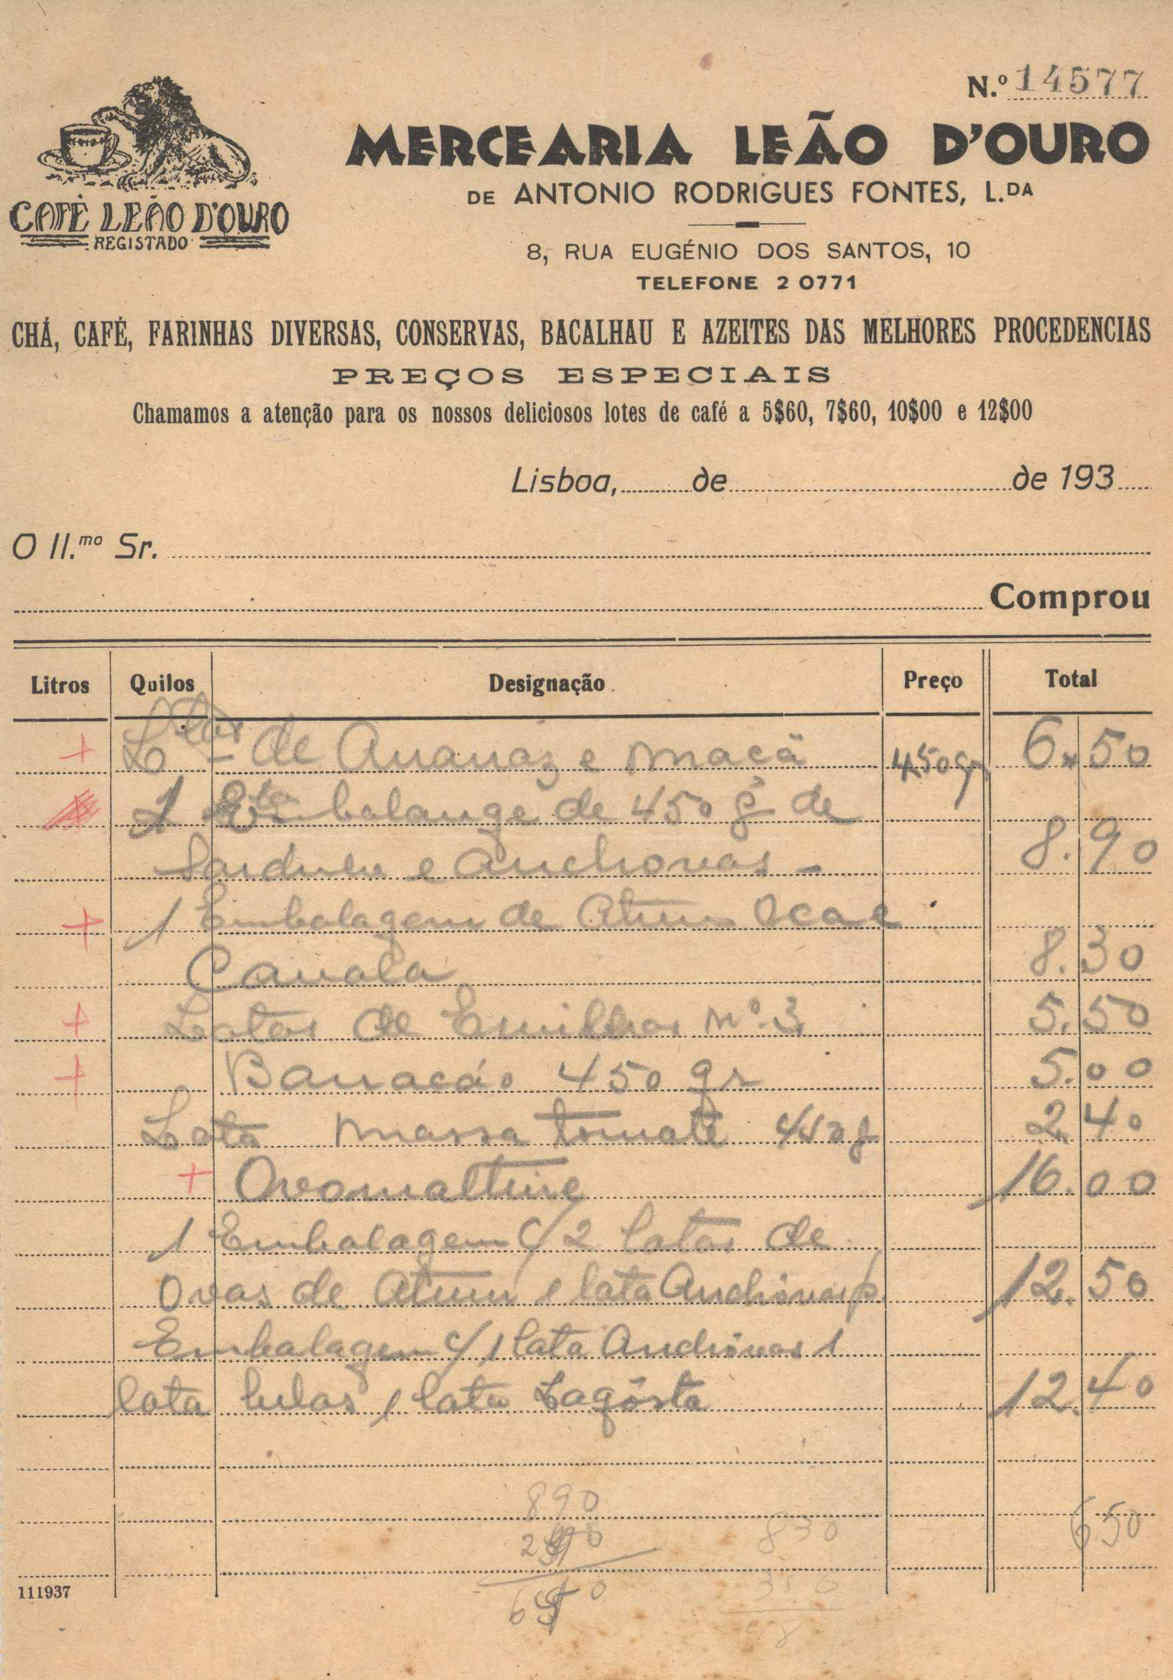 N.º 14577
MERCEARIA LEÃO D'OURO
DE ANTONIO RODRIGUES FONTES, L.DA
CAFÉ LEÃO D'OURO
REGISTADO
8, RUA EUGÉNIO DOS SANTOS, 10
TELEFONE 2 0771
CHÁ, CAFÉ, FARINHAS DIVERSAS, CONSERVAS, BACALHAU E AZEITES DAS MELHORES PROCEDENCIAS
PREÇOS ESPECIAIS
Chamamos a atenção para os nossos deliciosos lotes de café a 5$60, 7$60, 10$00 e 12$00
Lisboa, de de 193
O Il.mo Sr.
Comprou
Litros Quilos Designação Preço Total
de Ananaz e maçã 450gr 6.50
1 de 450 g de
Sardinha e Anchovas - 8.90
1 Embalagem de Atum
8.30
Latas de nº 3 5.50
450 gr 5.00
Lata massa tomate 2.40
+ Ovomaltine 16.00
1 Embalagem c/2 latas de
Ovas de Atum 1 lata Anchóvas 12.50
Embalagem c/1 lata Anchóvas 1
lata lulas 1 lata Lagósta 12.40
890
830
650
111937